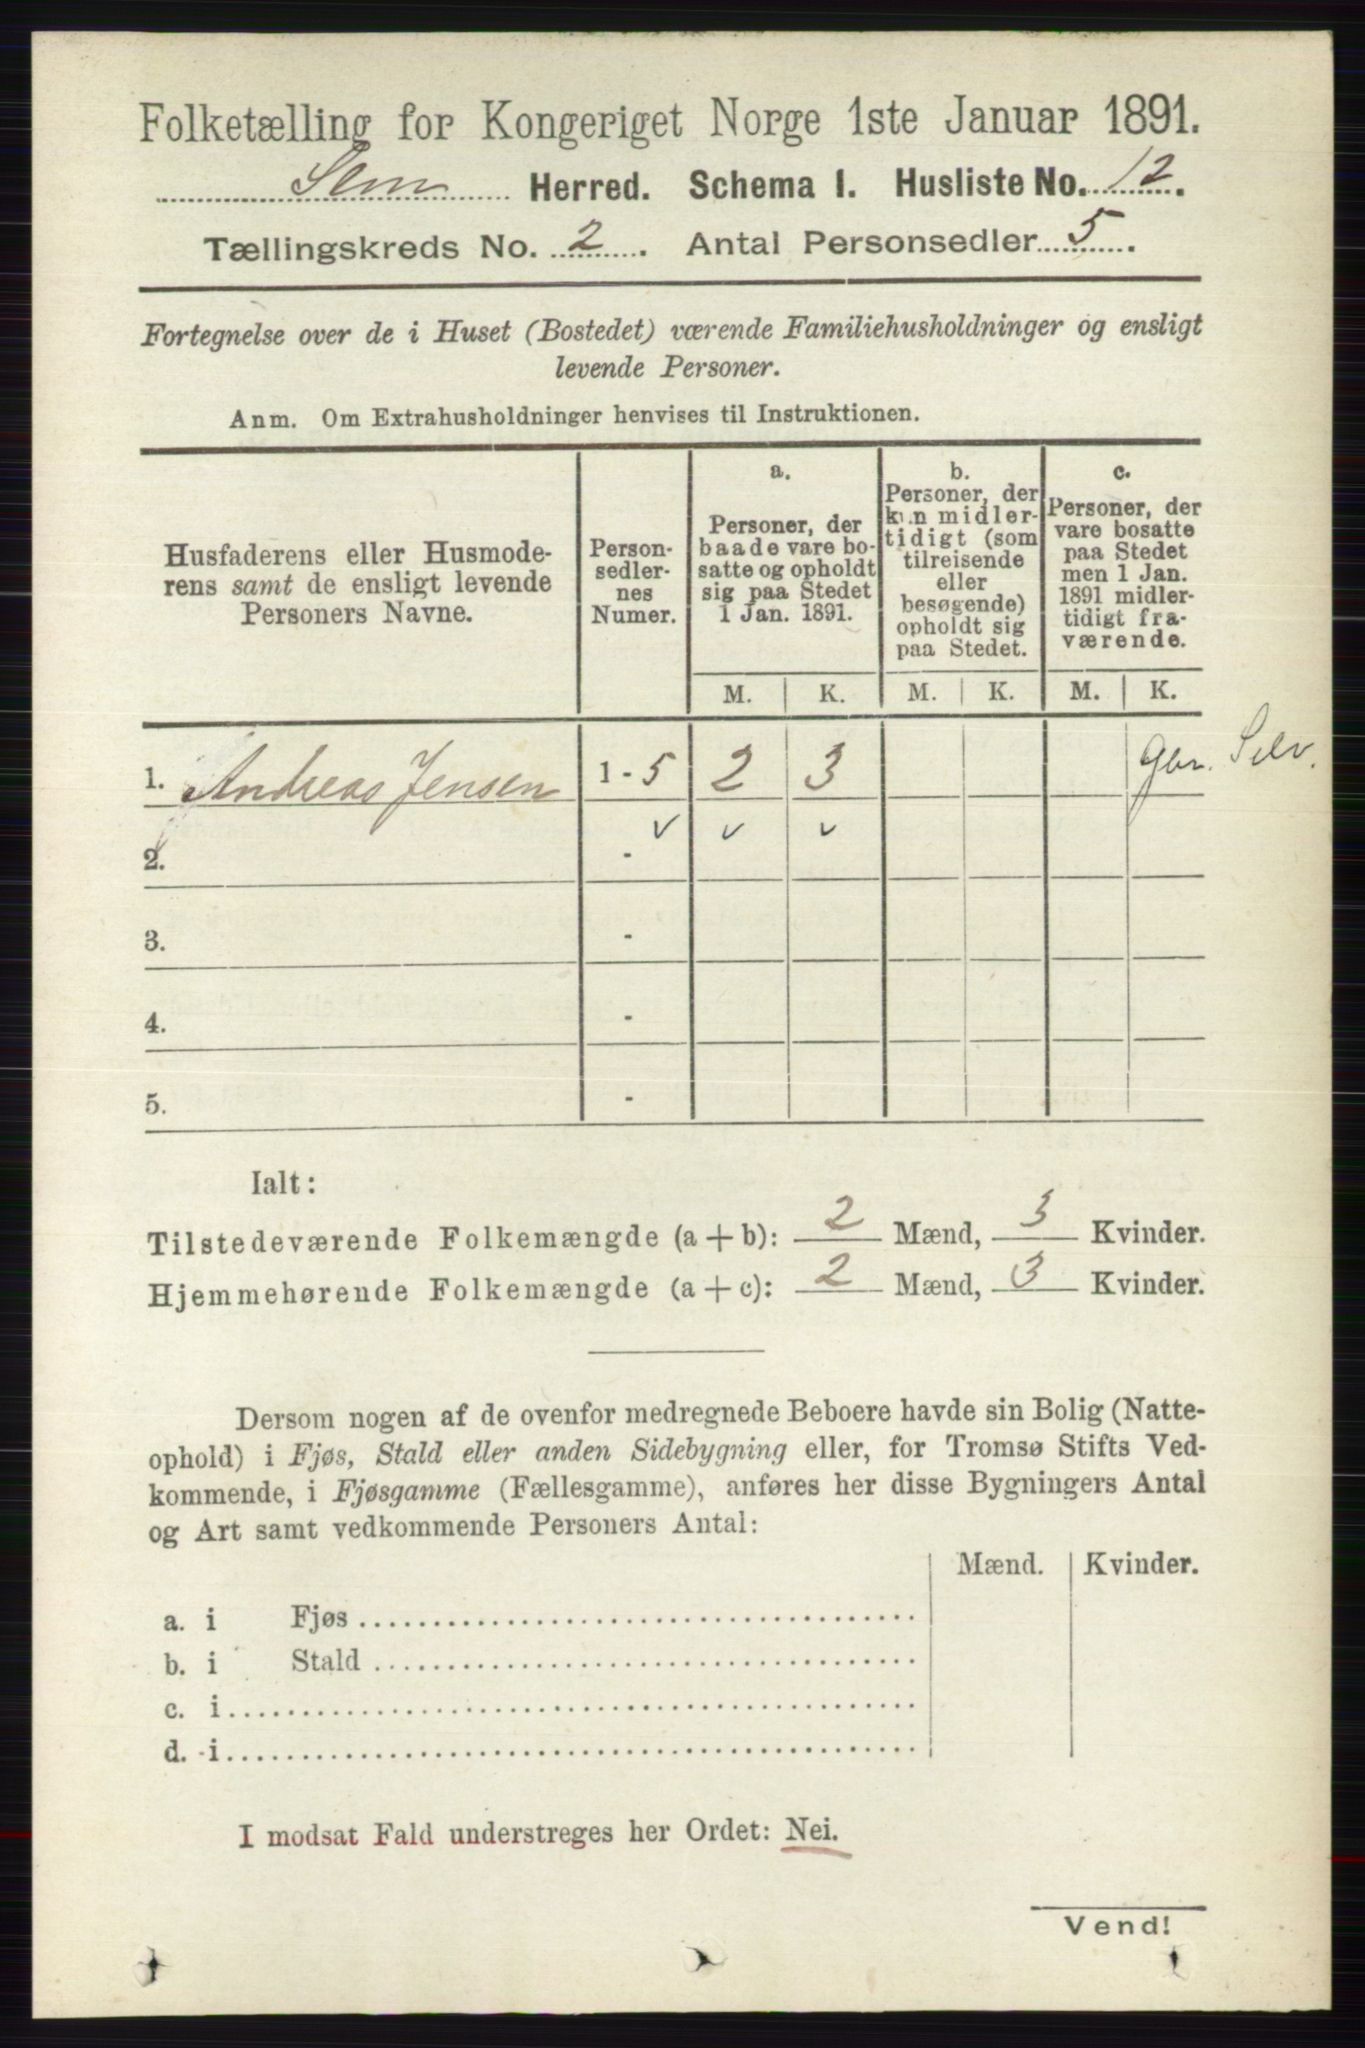 Folketælling for Kongeriget Norge 1ste Januar 1891.
Sem Herred. Schema I. Husliste No. 12.
Tællingskreds No. 2. Antal Personsedler 5.
Fortegnelse over de i Huset (Bostedet) værende Familiehusholdninger og ensligt
levende Personer.
Anm. Om Extrahusholdninger henvises til Instruktionen.
Husfaderens eller Husmode-
rens samt de ensligt levende
Personers Navne.
Person-
sedler-
nes
Numer.
a.
Personer, der
baade vare bo-
satte og opholdt
sig paa Stedet
1 Jan. 1891.
b.
Personer, der
kun midler-
tidigt (som
tilreisende
eller
besøgende)
opholdt sig
paa Stedet.
c.
Personer, der
vare bosatte
paa Stedet
men 1 Jan.
1891 midler-
tidigt fra-
værende.
M. K. M. K. M. K.
1. Andreas Jensen 1 - 5 2 3 Selv.
v v v
2. -
3. -
4. -
5. -
Ialt:
Tilstedeværende Folkemængde (a + b): 2 Mænd, 3 Kvinder.
Hjemmehørende Folkemængde (a + c): 2 Mænd, 3 Kvinder.
Dersom nogen af de ovenfor medregnede Beboere havde sin Bolig (Natte-
ophold) i Fjøs, Stald eller anden Sidebygning eller, for Tromsø Stifts Ved-
kommende, i Fjøsgamme (Fællesgamme), anføres her disse Bygningers Antal
og Art samt vedkommende Personers Antal:
Mænd. Kvinder.
a. i Fjøs
b. i Stald
c. i
d. i
I modsat Fald understreges her Ordet: Nei.
Vend!